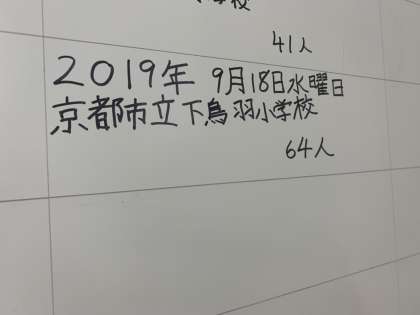 校
41人
2019年 9月18日水曜日
京都市立下鳥羽小学校
64人